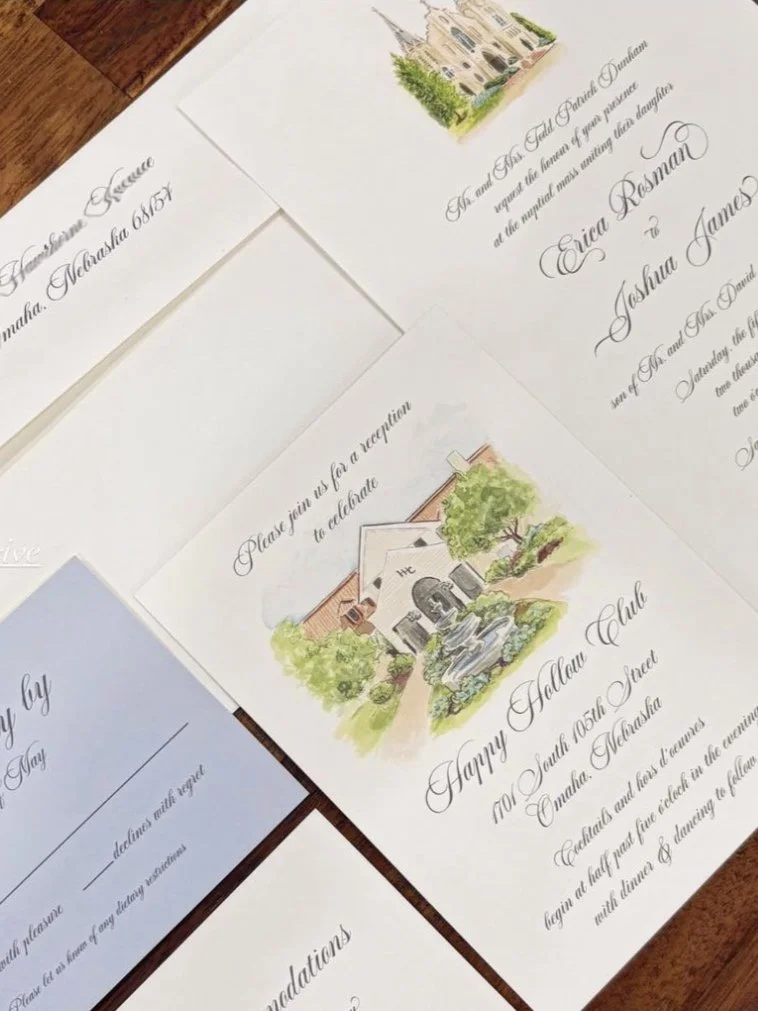 Omaha, Nebraska 68154
Mr. and Mrs. Todd Patrick Dunham
request the honour of your presence
at the nuptial mass uniting their daughter
Erica Rosman
to
Joshua James
son of Mr. and Mrs. David
Saturday, the fif
two thousa
two o'c
Please join us for a reception
to celebrate
HC
Happy Hollow Club
1701 South 105th Street
Omaha, Nebraska
Cocktails and hors d'oeuvres
begin at half past five o'clock in the evening
with dinner & dancing to follow
rive
y by
May
declines with regret
with pleasure
Please let us know of any dietary restrictions
modations